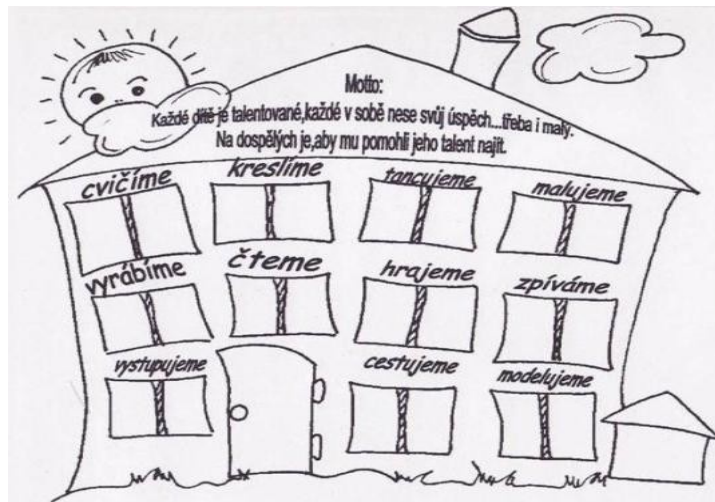 Motto:
Každé dítě je talentované,každé v sobě nese svůj úspěch...třeba i malý.
Na dospělých je,aby mu pomohli jeho talent najít.
cvičíme kreslíme tancujeme malujeme
vyrábíme čteme hrajeme zpíváme
vystupujeme cestujeme modelujeme